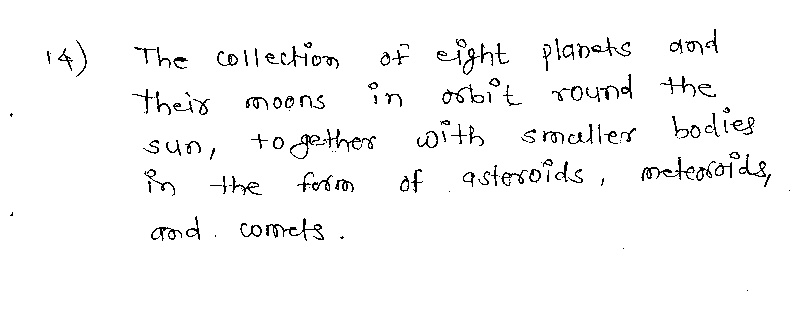 14) The collection of eight planets and
their moons in orbit round the
sun, together with smaller bodies
in the form of asteroids, meteoroids,
and comets.